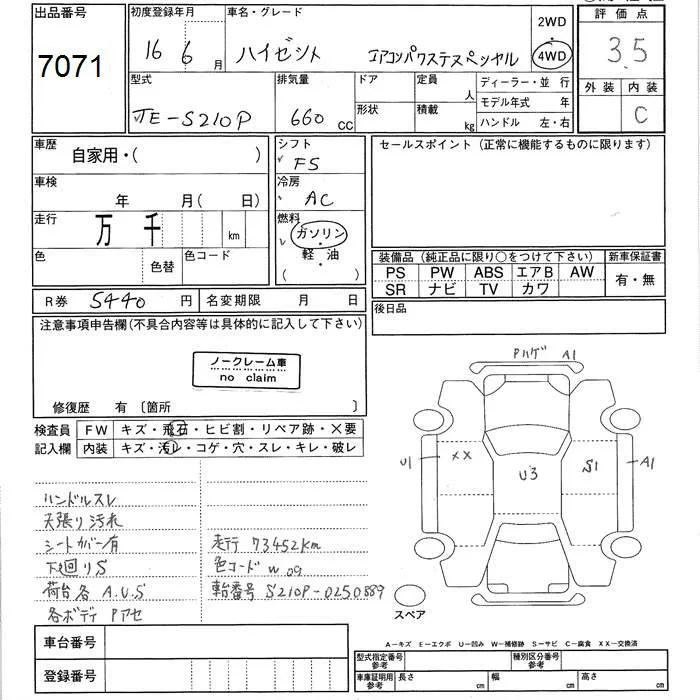 出品番号
7071
初度登録年月
16 6 月
車名・グレード
ハイゼット エアコンパワステスペシャル
2WD
・
4WD
評価点
3.5
外装 内装
C
型式
TE-S210P
排気量
660 cc
ドア
形状
定員 人
積載 kg
ディーラー・並行
モデル年式 年
ハンドル 左・右
車歴
自家用・( )
シフト
F5
セールスポイント (正常に機能するものに限ります)
車検
年 月( 日)
冷房
AC
走行
万 千 km
燃料
ガソリン
・
軽・油
( )
色
色替
色コード
装備品 (純正品に限り○をつけて下さい)
新車保証書
PS PW ABS エアB AW
SR ナビ TV カワ
有・無
R券 5440 円
名変期限 月 日
後日品
注意事項申告欄(不具合内容等は具体的に記入して下さい)
ノークレーム車
no claim
修復歴 有 〔箇所 〕
検査員
記入欄
FW キズ・飛石・ヒビ割・リペア跡・×要
内装 キズ・汚れ・コゲ・穴・スレ・キレ・破レ
Pハゲ A1
U1
XX
U3
S1
A1
ハンドルスレ
天張り汚れ
シートカバー有
下廻りS
荷台各 A.U.S
各ボディ Pアセ
走行 73452km
色コード W09
車台番号 S210P-0250889
スペア
車台番号
登録番号
A-キズ E-エクボ U-凹み W-補修跡 S-サビ C-腐食 XX-交換済
型式指定番号
参考
種別区分番号
参考
車庫証明用
参考
長さ cm
幅 cm
高さ cm